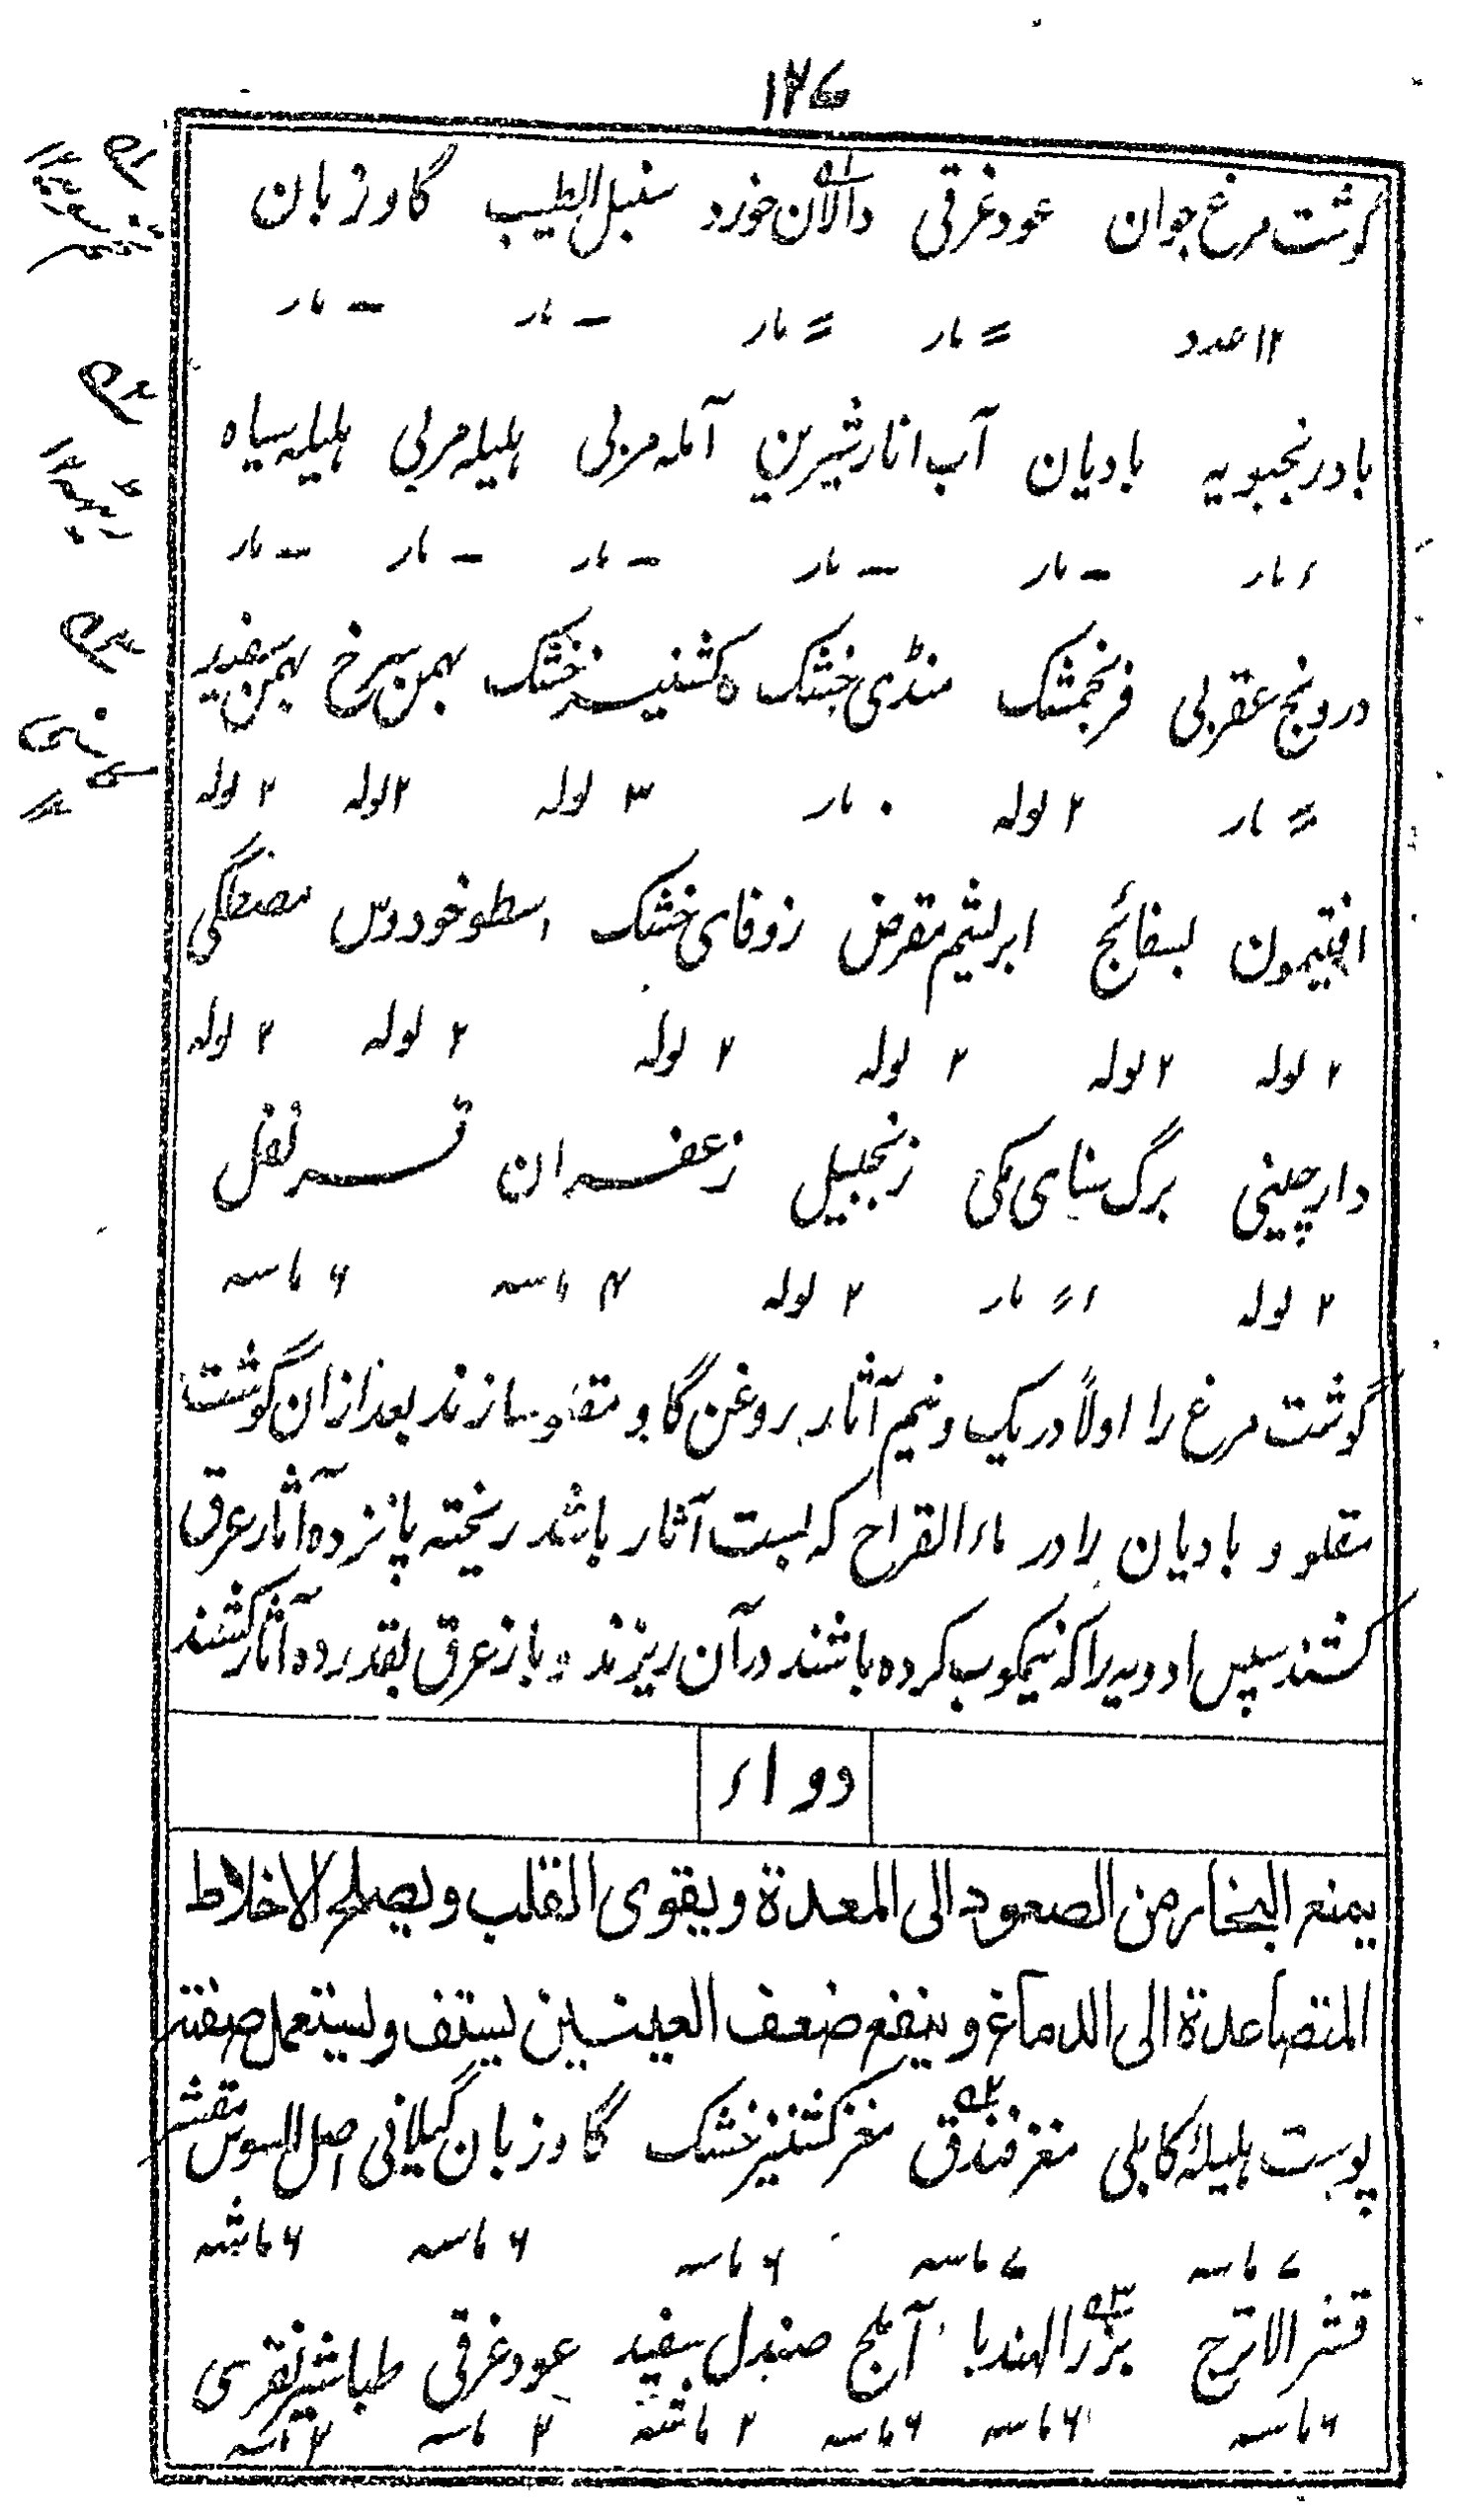 ۱۲۶
گوشت مرغ جوان عود غرقی دالان خورد سنبل الطیب گاوزبان
۱۲ عدد = مار = مار - مار - مار
بادرنجبویه بادیان آب انار شیرین آمله مربی ہلیلہ مربی ہلیلہ سیاہ
مار - مار - مار - مار - مار - مار
درونج عقربی فرنجمشک منڈی خشک کشنیز خشک بہمن سرخ بہمن سفید
= مار ۲ لولہ مار ۳ لولہ ۲ لولہ ۲ لولہ
افتیمون بسفائج ابریشم مقرض زوفای خشک اسطوخودوس مصطگی
۲ لولہ ۲ لولہ ۲ لولہ ۲ لولہ ۲ لولہ ۲ لولہ
دارچینی برگ سنای مکی زنجبیل زعفران قرنفل
۲ لولہ مار ۲ لولہ ۴ ماسہ ۶ ماسہ
گوشت مرغ را اولاً در یک و نیم آثار روغن گاو مقلو سازند بعد ازان گوشت
مقلو و بادیان را در ماء القراح کہ بست آثار باشد ریختہ پانزدہ آثار عرق
کشند سپس ادویہ را کہ نیمکوب کردہ باشند در آن ریزند و باز عرق بقدر دہ آثار کشند
دواء
یمنع البخار من الصعود الی المعدة ویقوی القلب ویصلح الاخلاط
المتصاعدة الی الدماغ وینفع ضعف العینین یستف ویستعمل صفتہ
پوست ہلیلہ کابلی مغز فندق مغز کشنیز خشک گاوزبان گیلانی اصل السوس مقشر
۷ ماسہ ۷ ماسہ ۶ ماسہ ۶ ماسہ ۶ ماشہ
قشر الاترج بزر الہندبا آملج صندل سفید عود غرقی طباشیر نقری
۶ ماسہ ۶ ماسہ ۶ ماسہ ۲ ماشہ ۲ ماسہ ۲ ماسہ